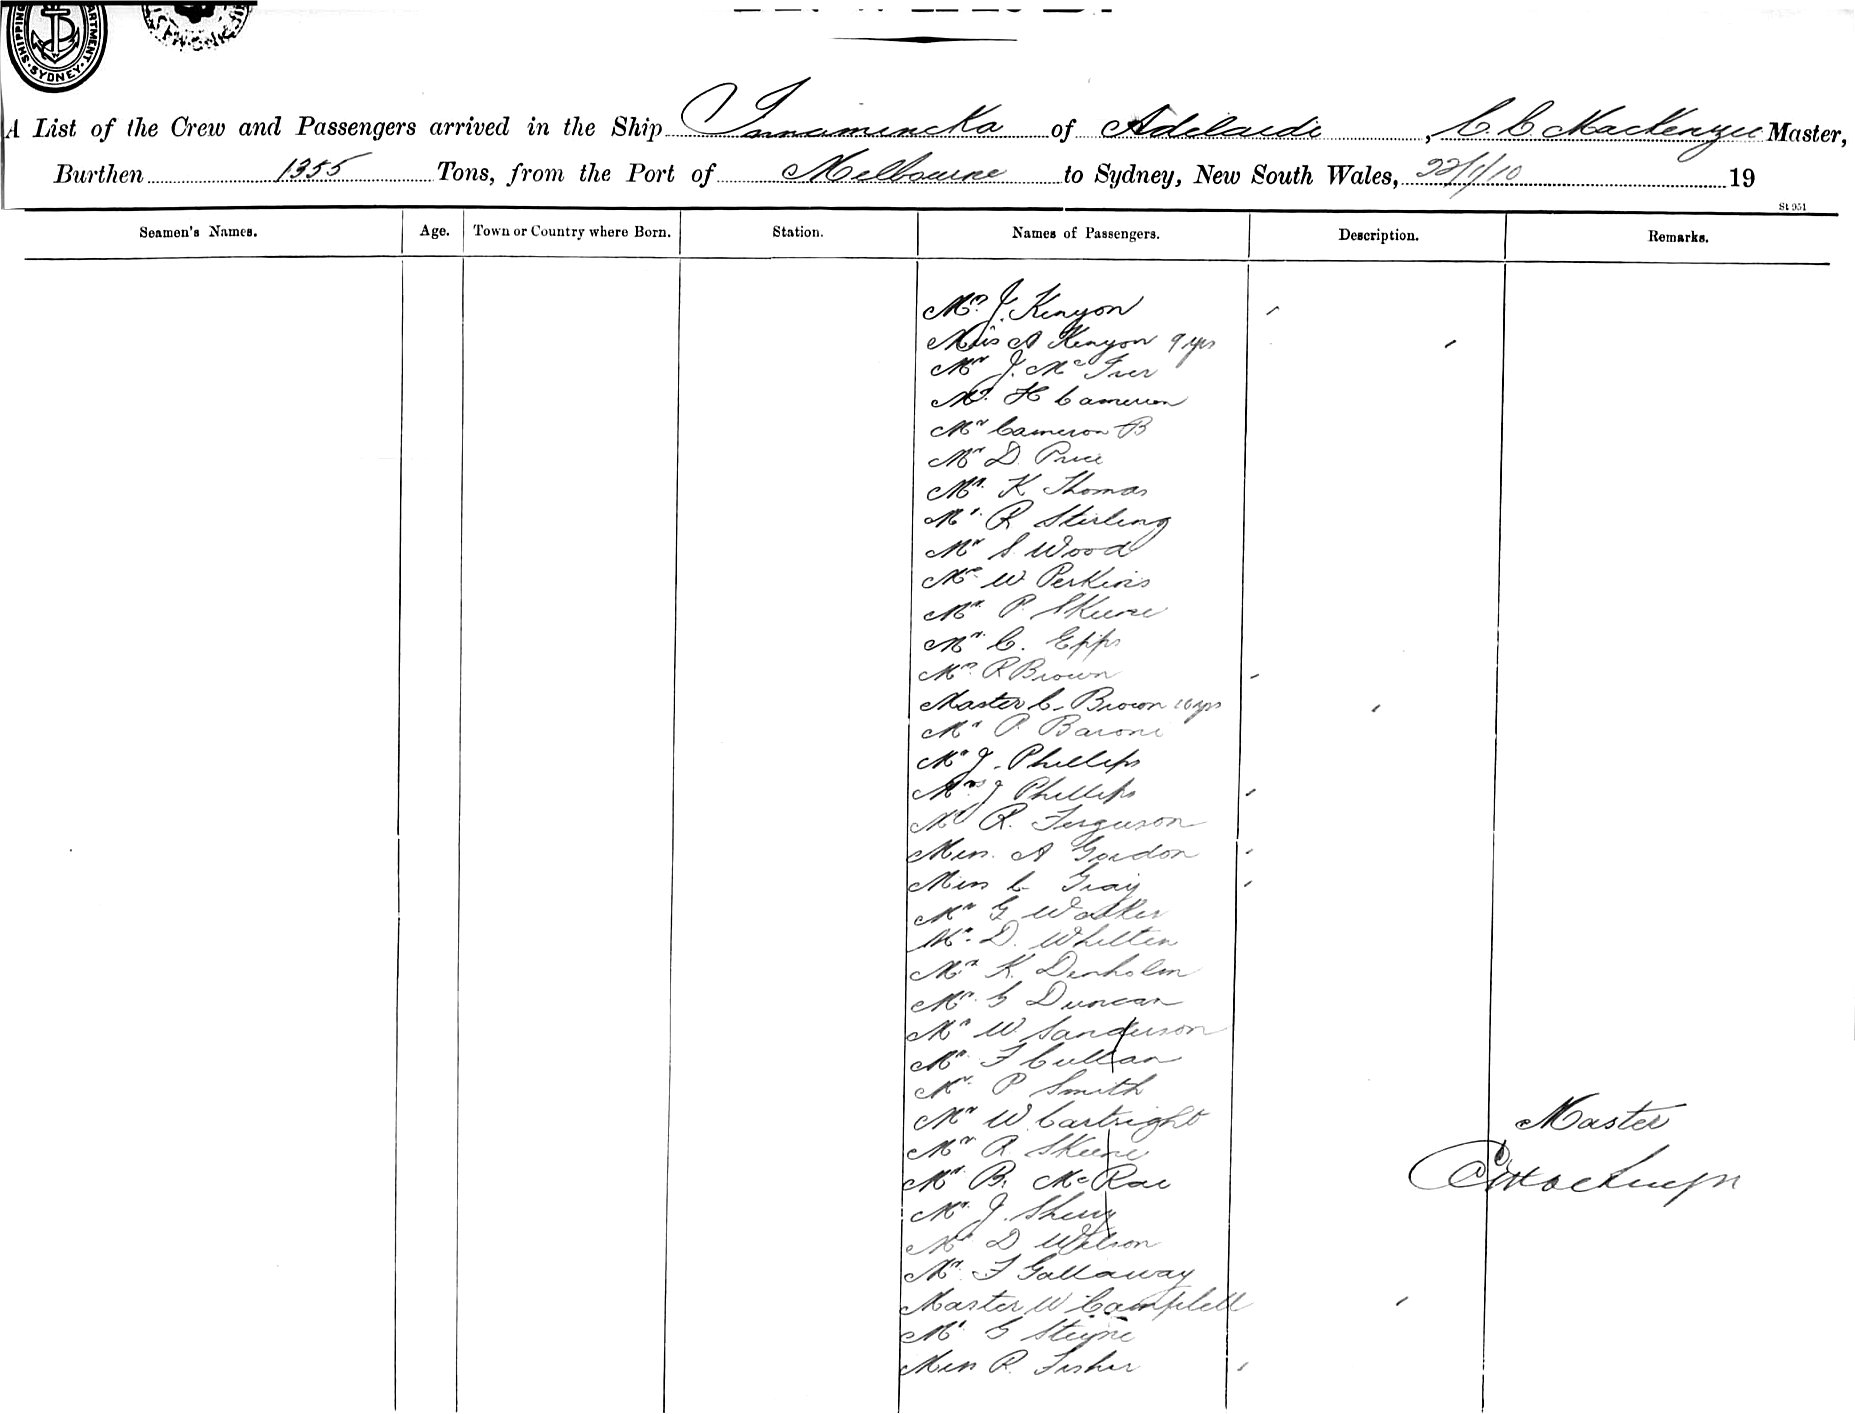 SHIPPING DEPARTMENT SYDNEY
A List of the Crew and Passengers arrived in the Ship Innamincka of Adelaide, C. C. MacKenzie Master,
Burthen 1355 Tons, from the Port of Melbourne to Sydney, New South Wales, 22/1/10 19
St 951
Seamen's Names. Age. Town or Country where Born. Station. Names of Passengers. Description. Remarks.
Mrs J. Kenyon
Miss A Kenyon 9 yrs
Mr J. McFeer
Mr. H Cameron
Mr Cameron B
Mr D. Price
Mr. K Thomas
Mr R Stirling
Mr S. Wood
Mr. W Perkins
Mr. P. Skeene
Mr. C. Epps
Mrs R Brown
Master C. Brown 10 yrs
Mr P. Barone
Mr J. Phillips
Mrs J Phillips
Mr R. Ferguson
Miss. A Gordon
Miss C Gray
Mr G Walker
Mr. D. Whitten
Mr K. Denholm
Mr. G Duncan
Mr W. Sanderson
Mr. F Cullan
Mr. P Smith
Mr W. Cartright
Master
Mr R. Skeene
Mr. B. McRae
Mr. J. Sherry
Mr D Wilson
Mr. F Gallaway
Master W Campbell
Mr. G Steyne
Miss R. Fisher